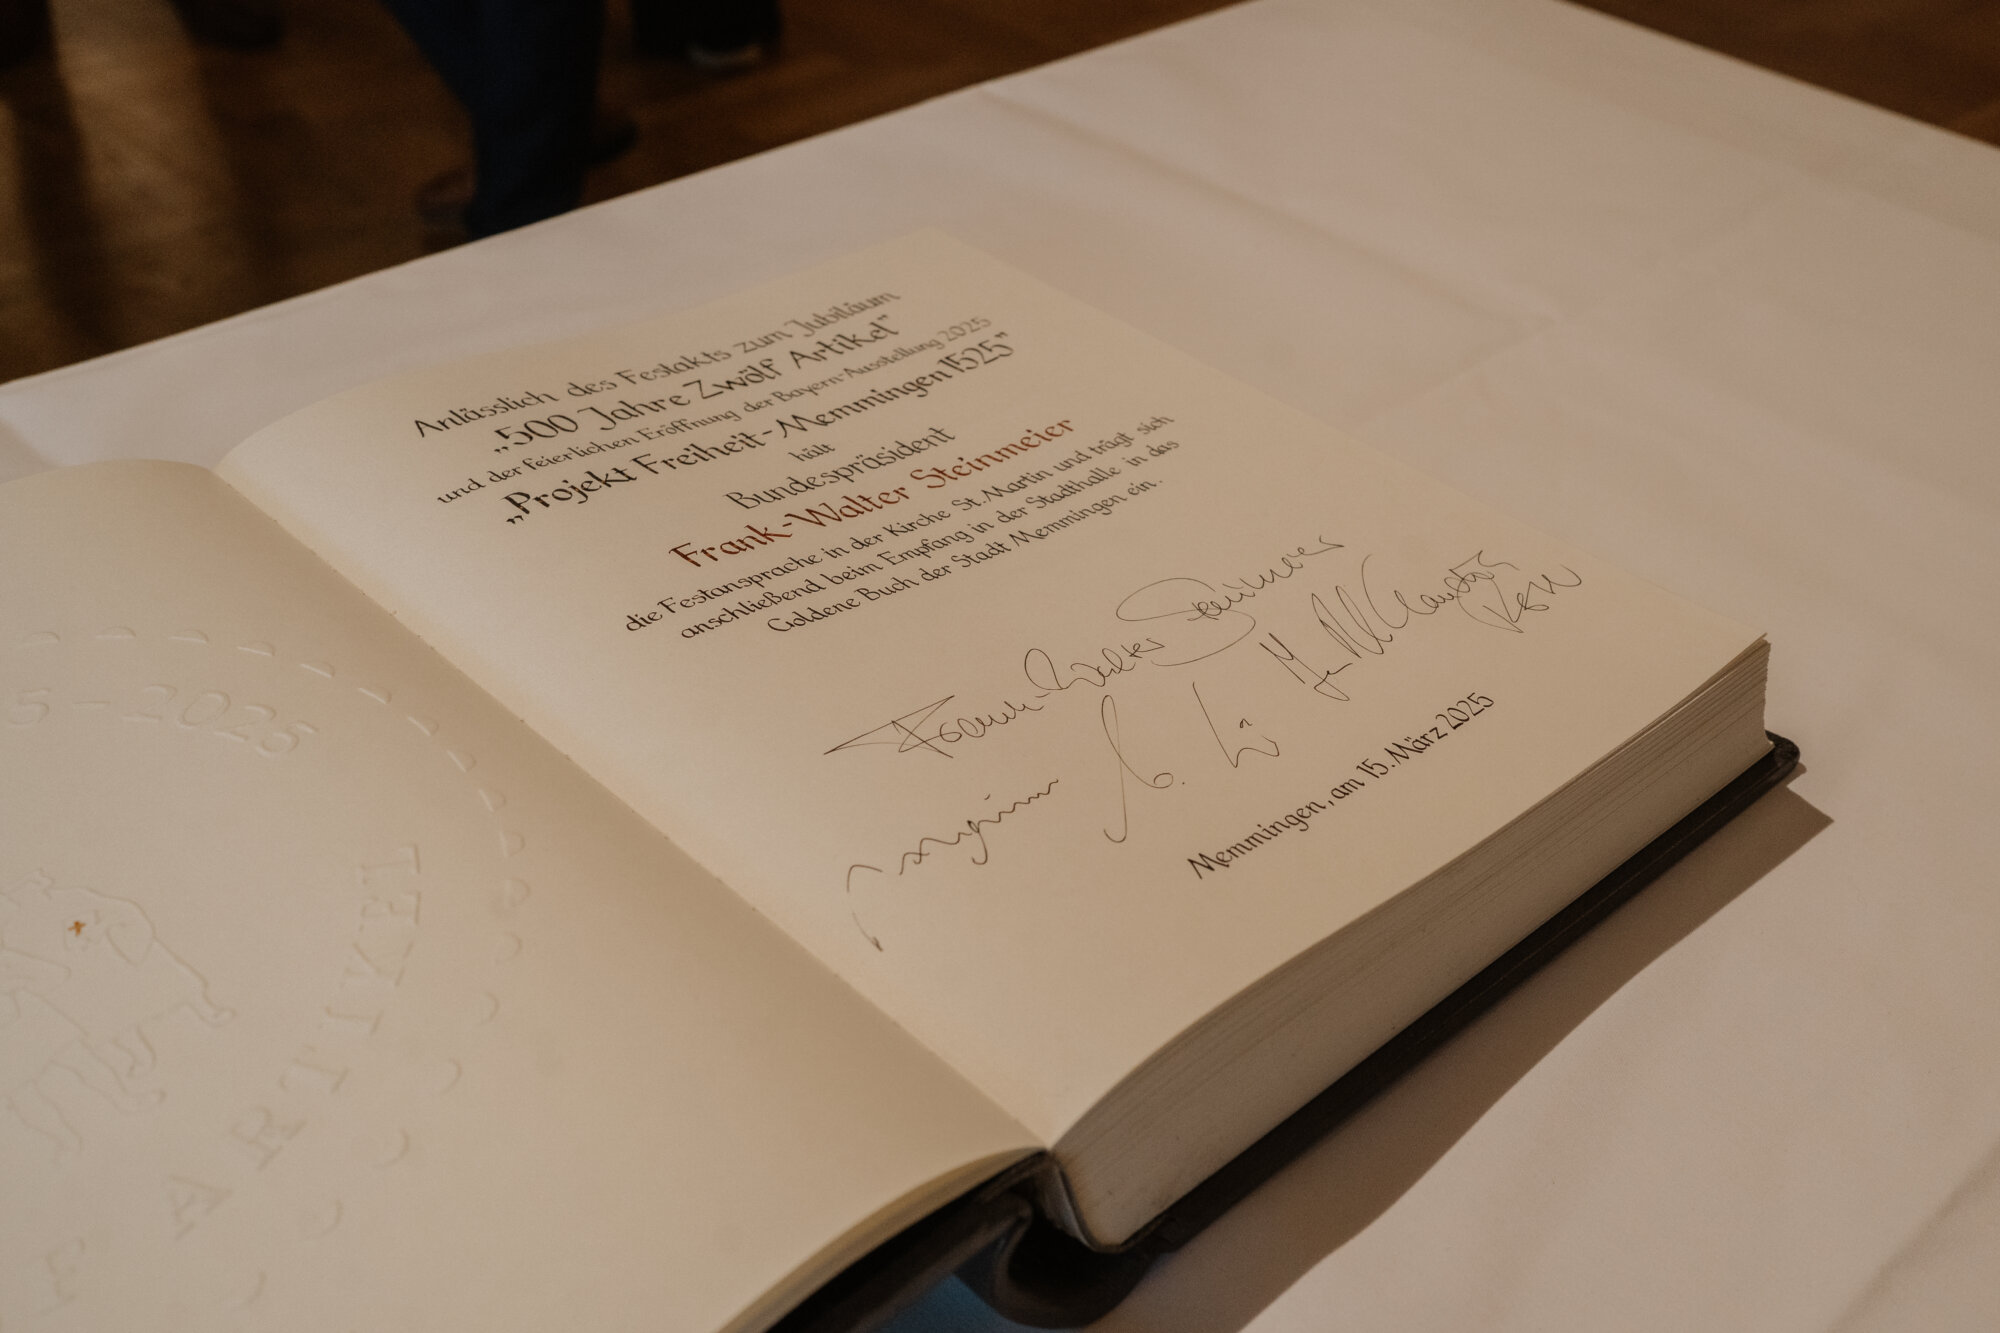 5 - 2025
ARTIKEL
Anlässlich des Festakts zum Jubiläum
„500 Jahre Zwölf Artikel"
und der feierlichen Eröffnung der Bayern-Ausstellung 2025
„Projekt Freiheit - Memmingen 1525"
hält
Bundespräsident
Frank-Walter Steinmeier
die Festansprache in der Kirche St. Martin und trägt sich
anschließend beim Empfang in der Stadthalle in das
Goldene Buch der Stadt Memmingen ein.
Frank-Walter Steinmeier
Memmingen, am 15. März 2025